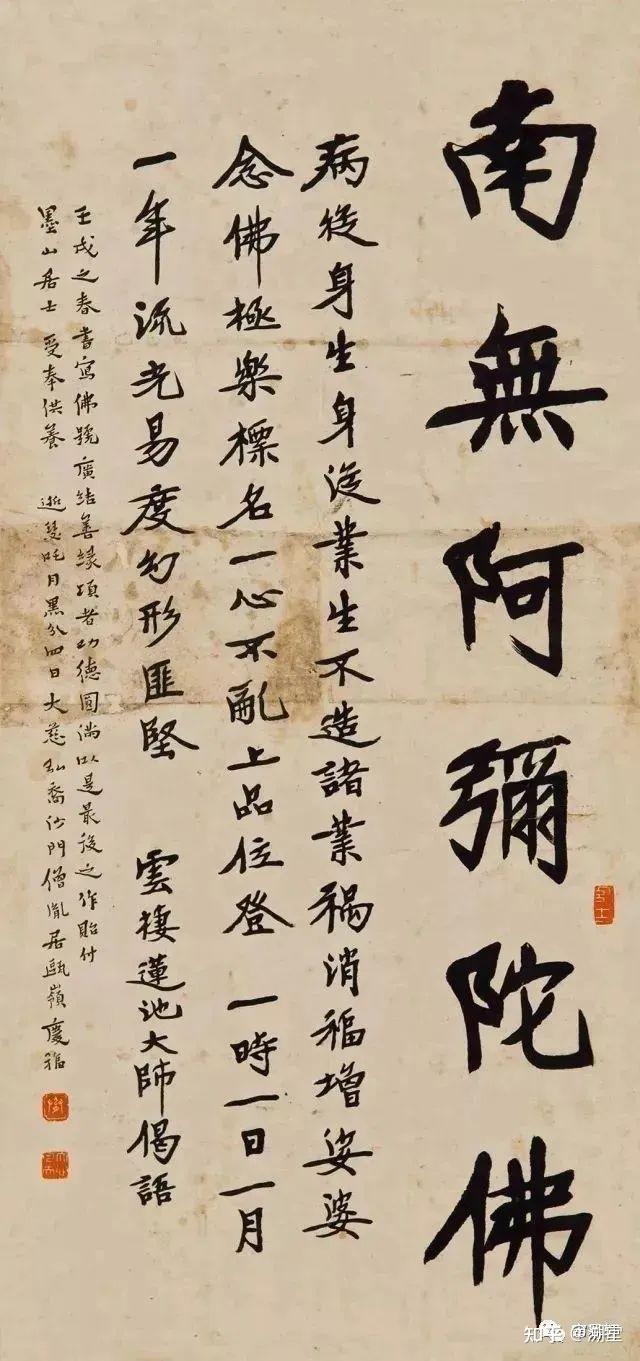 南無阿彌陀佛
病從身生身從業生不造諸業禍消福增娑婆
念佛極樂標名一心不亂上品位登 一時一日一月
一年流光易度幻形匪堅 雲棲蓮池大師偈語
壬戌之春書寫佛號廣結善緣頃者功德圓滿以是最後之作貽付
墨山居士 受奉供養 逝瑟吒月黑分四日大慈弘裔沙門僧胤居甌嶺慶福
知乎 @溯星